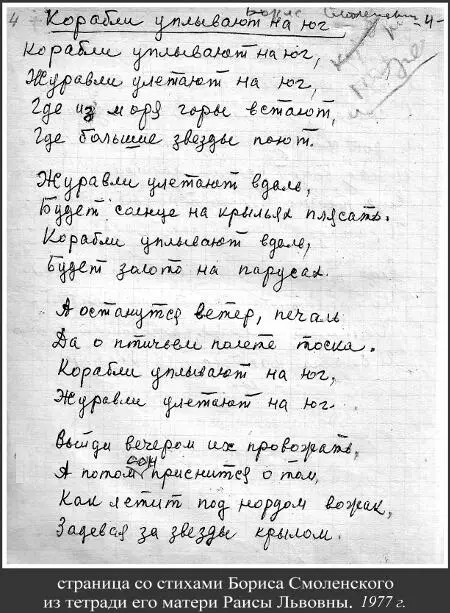 4 Корабли уплывают на юг Борис Смоленский -4-
Корабли уплывают на юг,
Журавли улетают на юг,
Где из моря горы встают,
Где большие звезды поют.
Журавли улетают вдаль,
Будет солнце на крыльях плясать.
Корабли уплывают вдаль,
Будет золото на парусах.
А останутся ветер, печаль
Да о птичьем полете тоска.
Корабли уплывают на юг,
Журавли улетают на юг.
Выйди вечером их провожать,
сон
А потом приснится о том,
Как летит под нордом вожак,
Задевая за звезды крылом.
страница со стихами Бориса Смоленского
из тетради его матери Раисы Львовны. 1977 г.